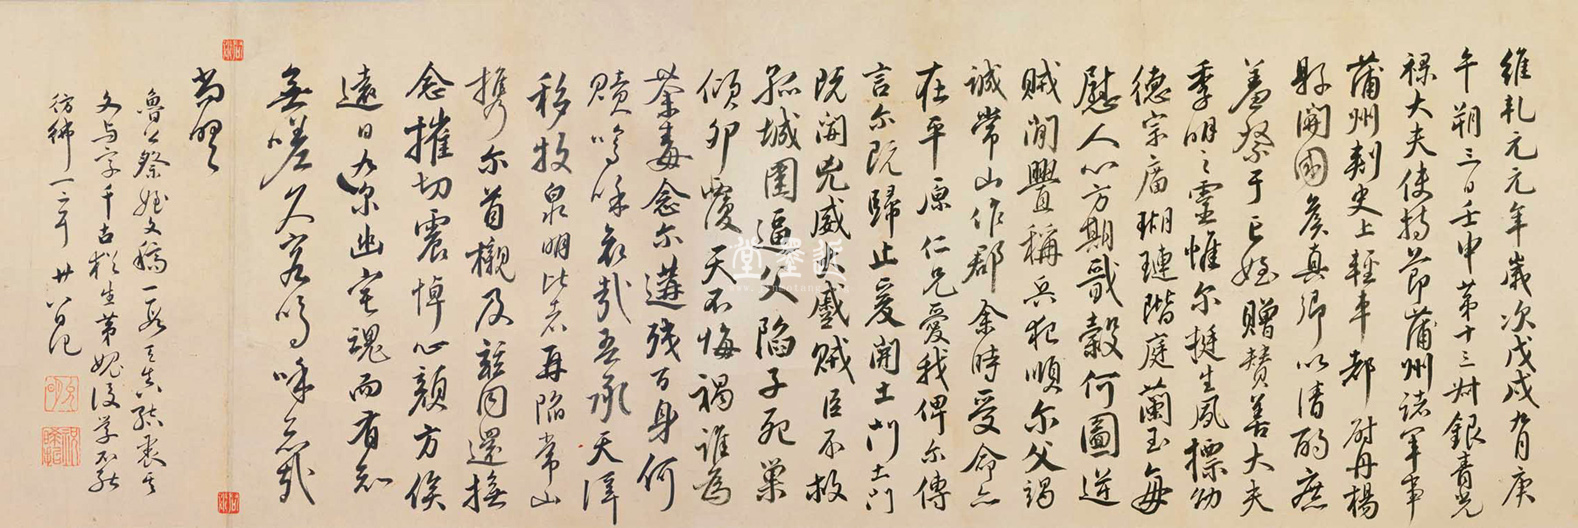 維乾元元年歲次戊戌九月庚
午朔三日壬申第十三叔銀青光
祿大夫使持節蒲州諸軍事
蒲州刺史上輕車都尉丹楊
縣開國矦真卿以清酌庶
羞祭于亡姪贈贊善大夫
季明之靈惟尔挺生夙標幼
德宗庿瑚璉階庭蘭玉每
慰人心方期戩穀何圖逆
賊閒釁稱兵犯順尔父竭
誠常山作郡余時受命亦
在平原仁兄愛我俾尔傳
言尔既歸止爰開土門土門
既開兇威大蹙賊臣不救
孤城圍逼父陷子死巢
傾卵覆天不悔禍誰為
荼毒念尔遘殘百身何
贖嗚呼哀哉吾承天澤
移牧泉明比者再陷常山
携尔首櫬及茲同還撫
念摧切震悼心顏方俟
遠日卜尔幽宅魂而有知
無嗟久客嗚呼哀哉
尚饗
魯公祭姪文稿一段天真
文與字千古後學不能
彷彿一二耳 廿八日記